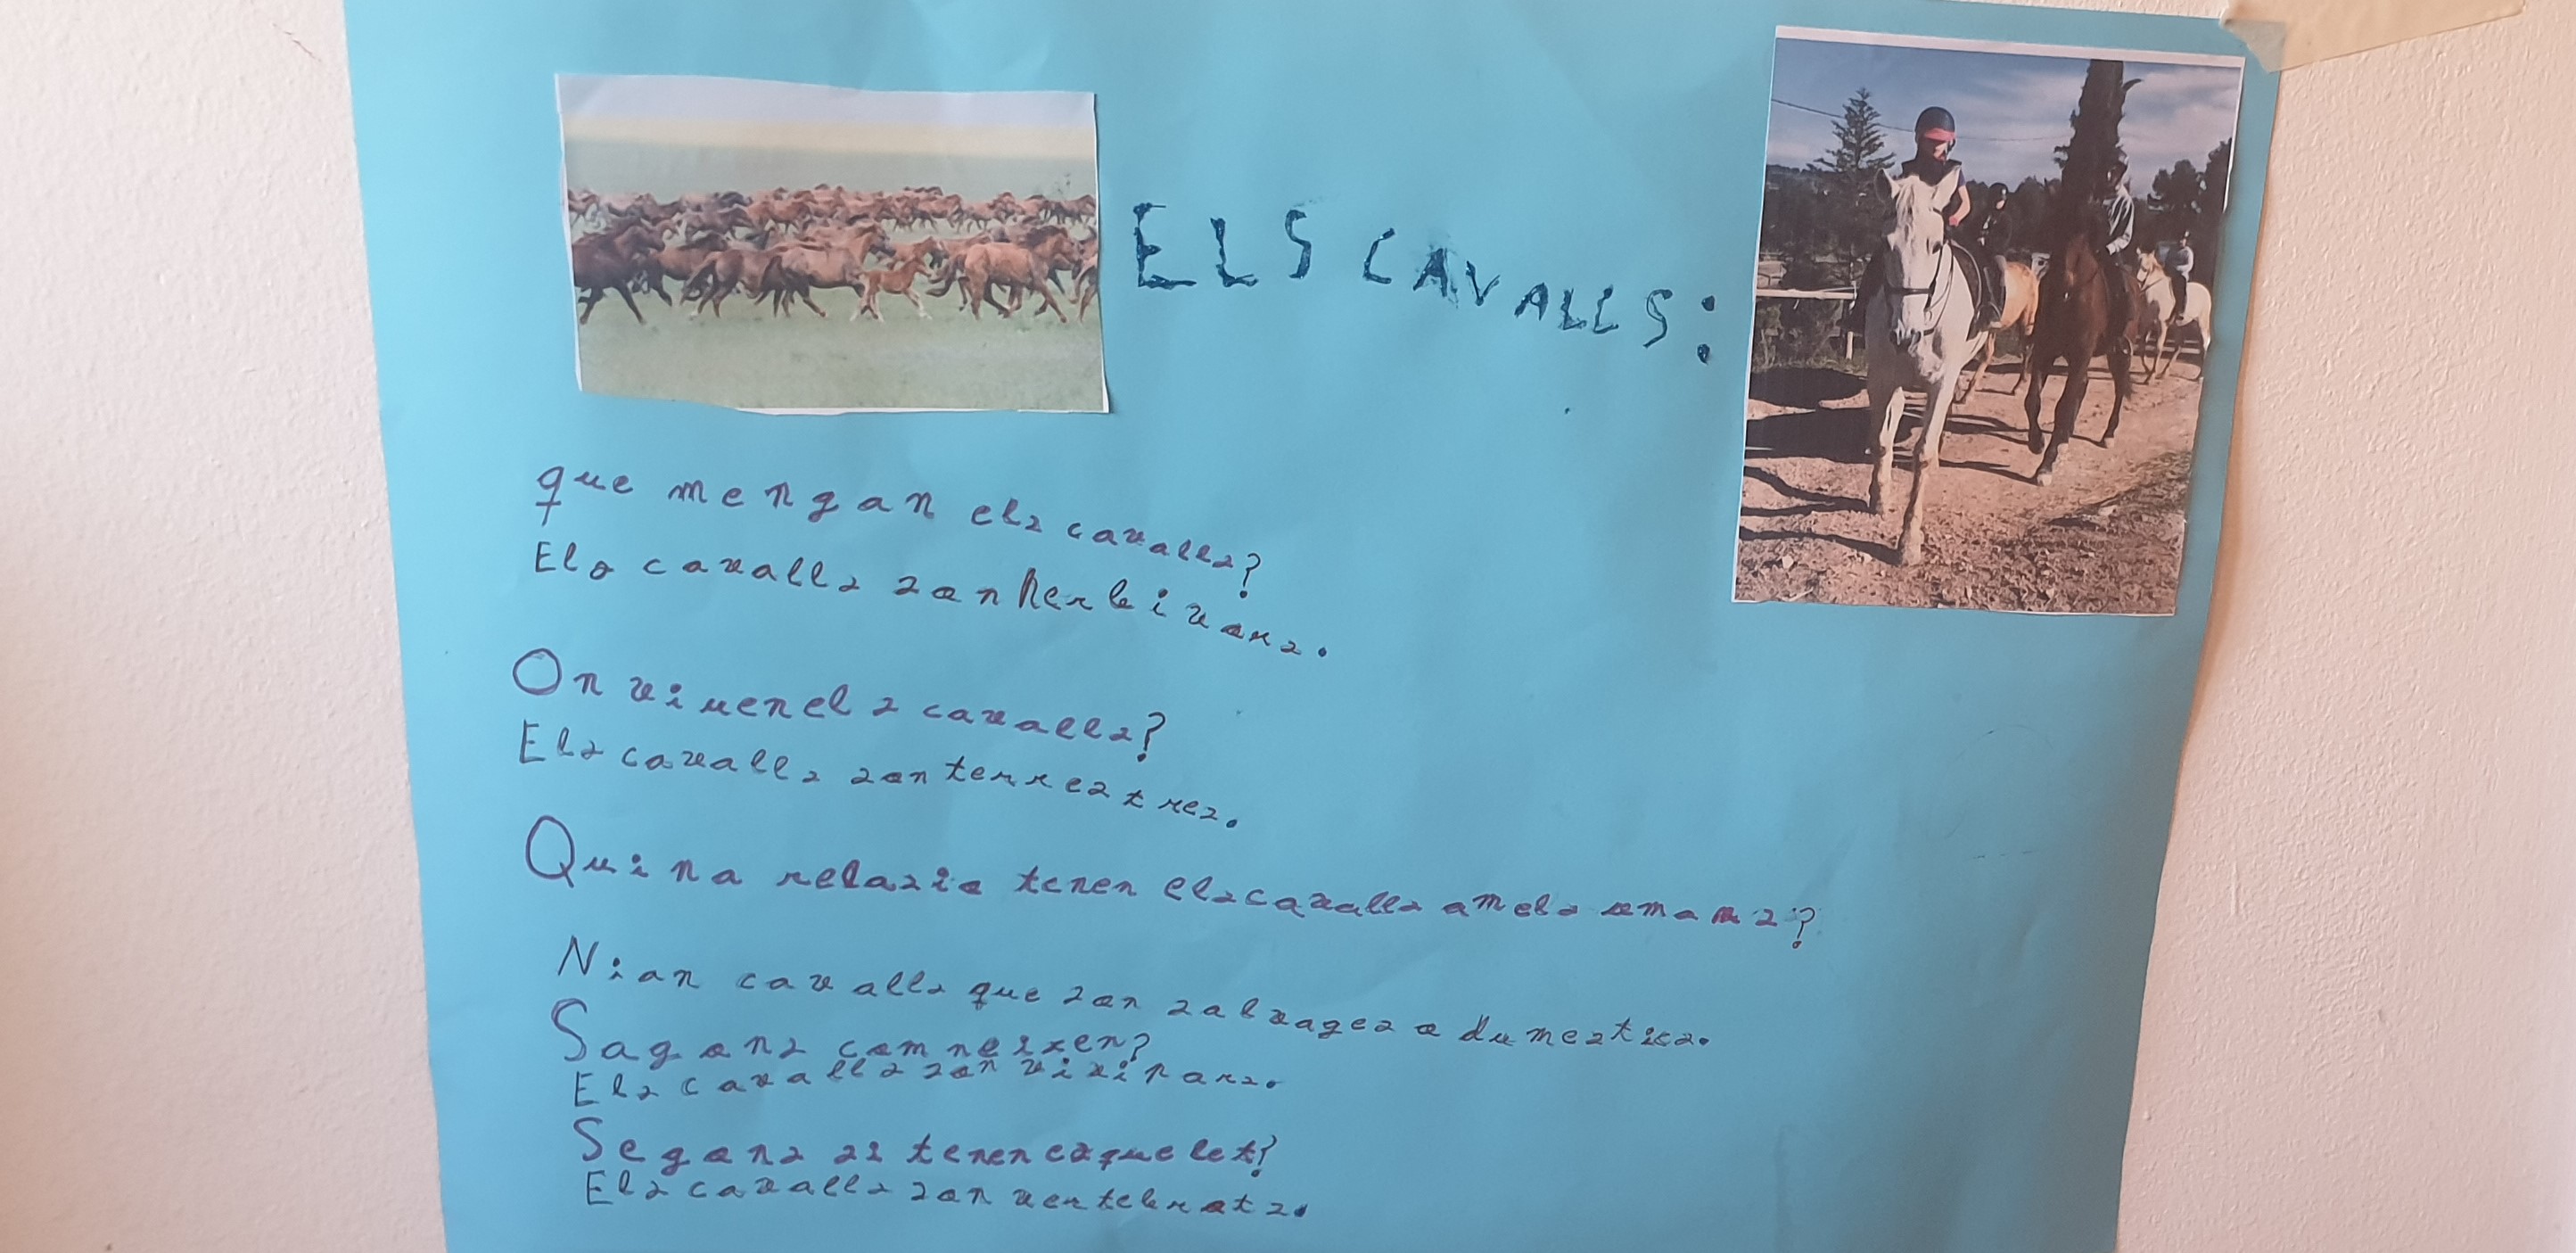 ELS CAVALLS:
que mengan els cavalls?
Els cavalls son herbivors.
On viuen els cavalls?
Els cavalls son terrestres.
Quina relasio tenen els cavalls am els umans?
Nian cavalls que son salvages o dumestics.
Sagons com neixen?
Els cavalls son vivipars.
Segons si tenen esquelet?
Els cavalls son vertebrats.